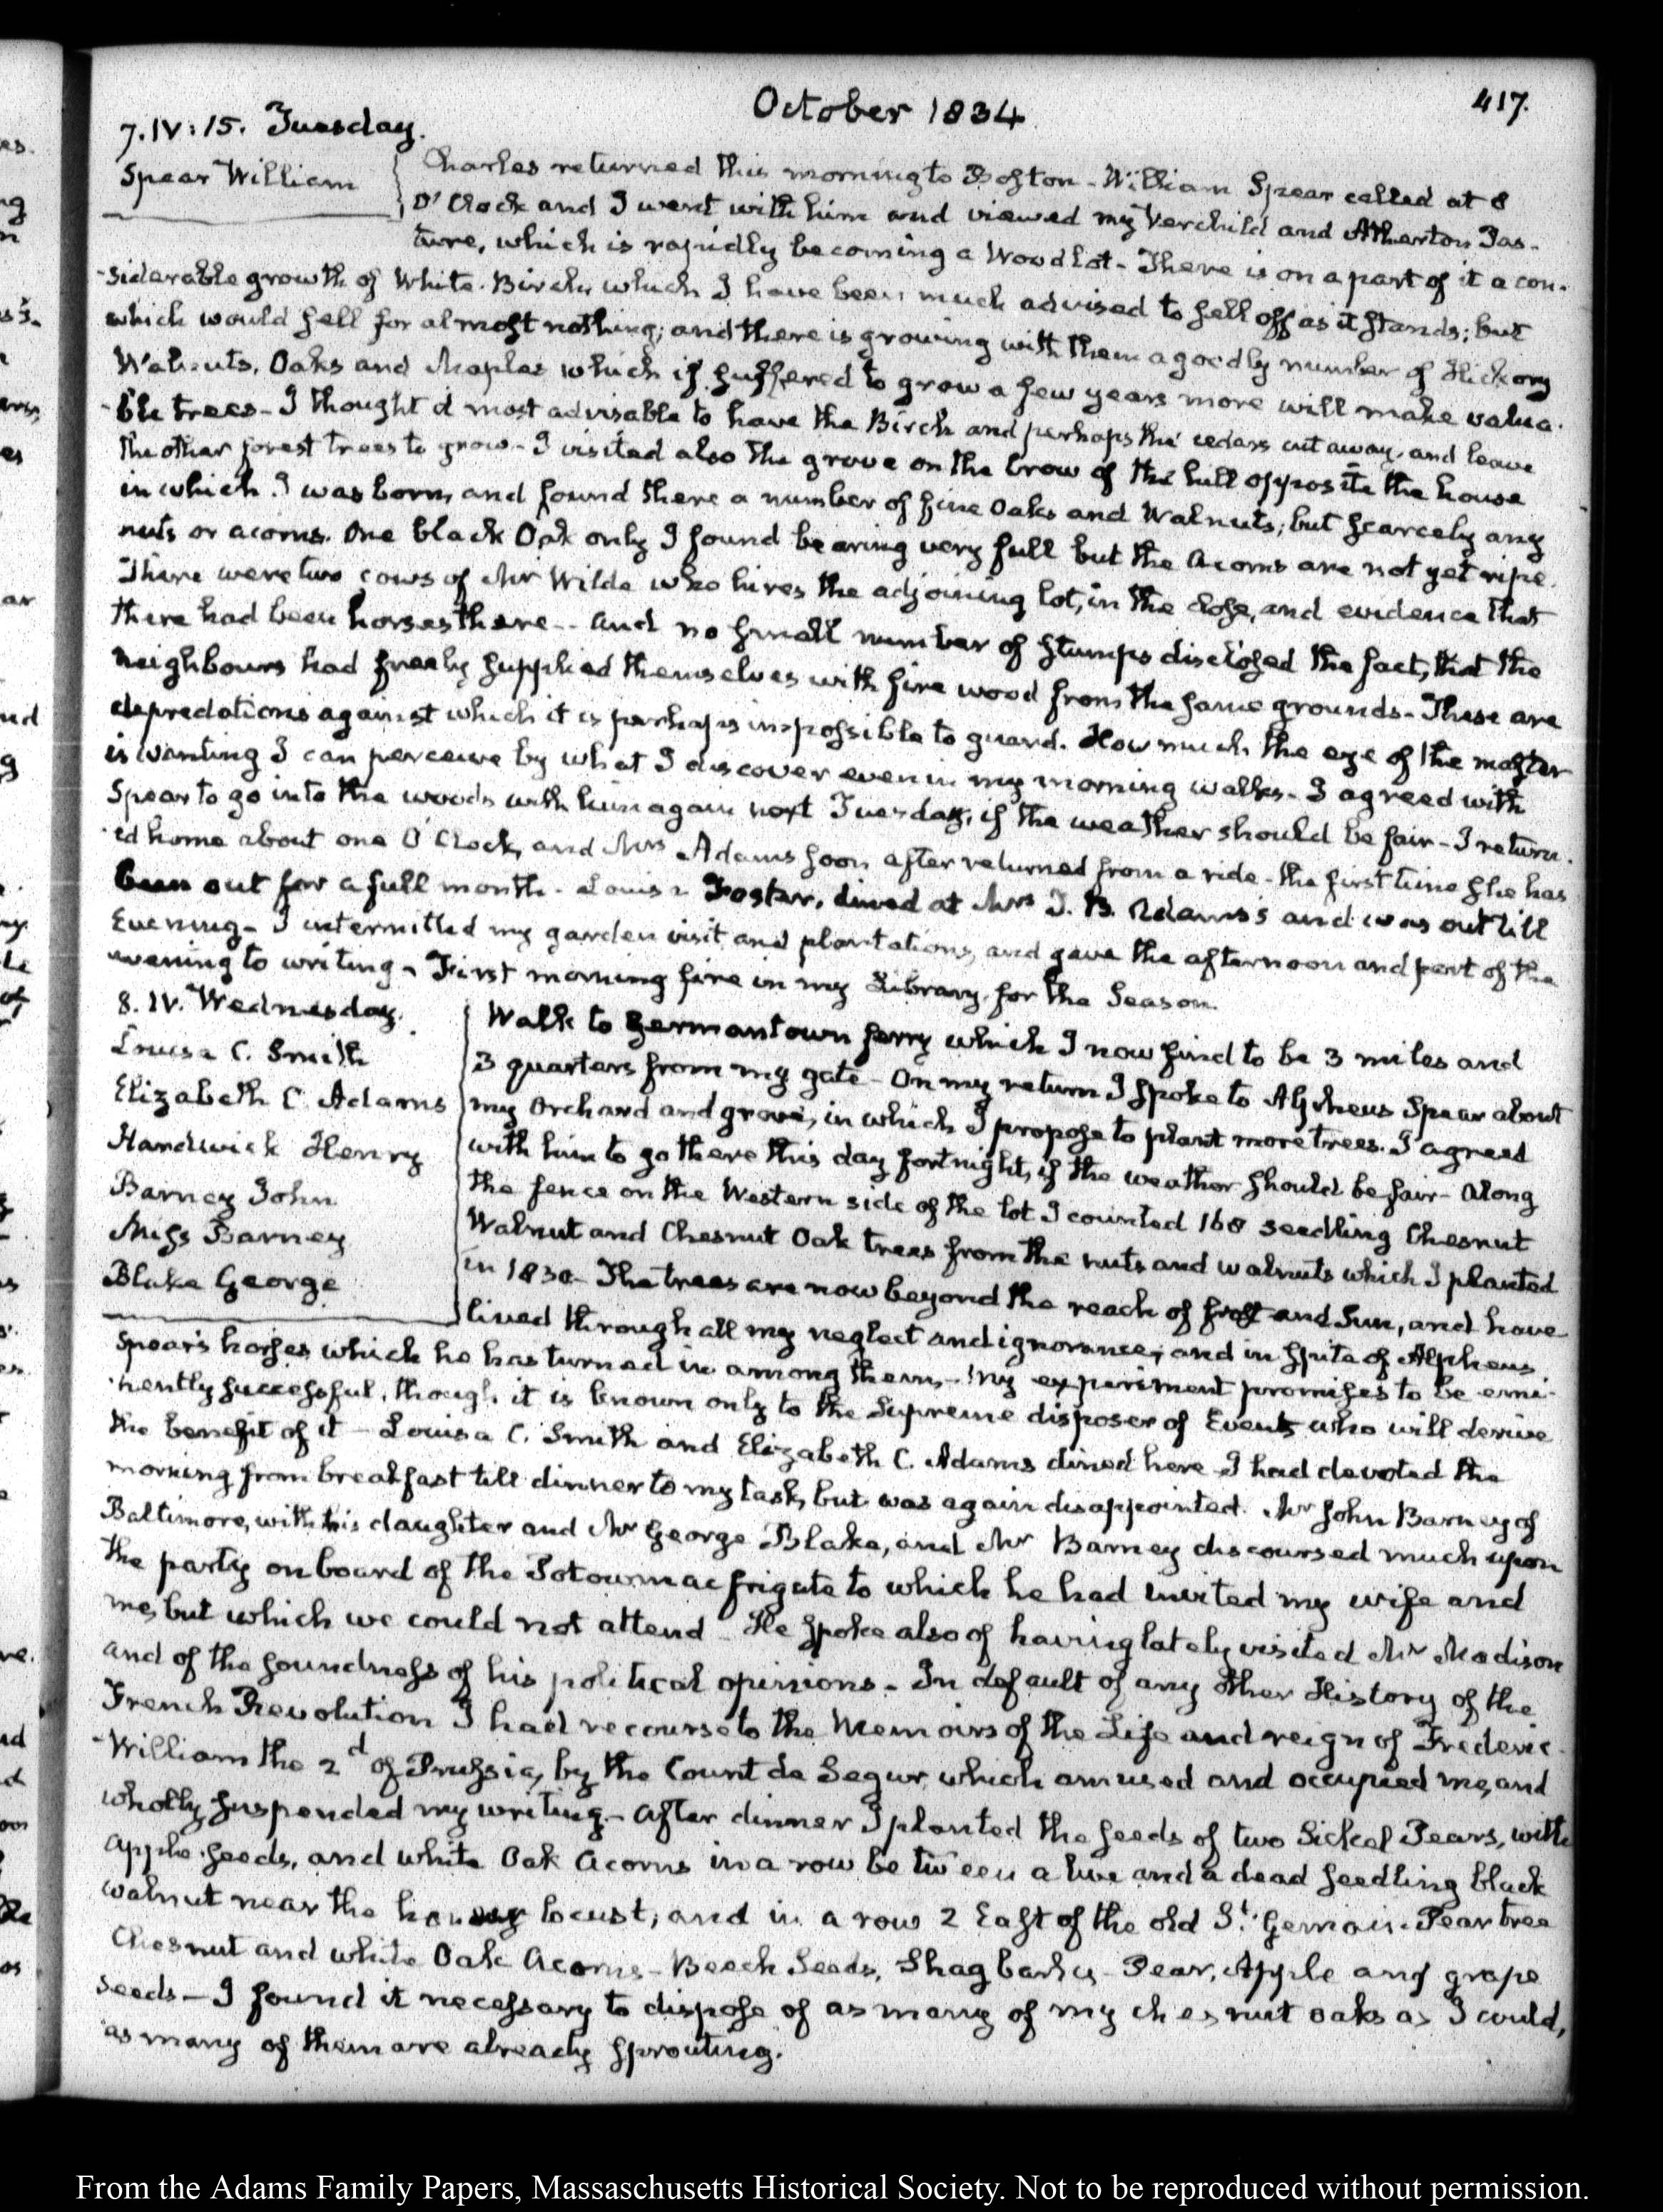 October 1834
417.
7. IV: 15. Tuesday.
Spear William
Charles returned this morning to Boston - William Spear called at 8
O'Clock and I went with him and viewed my Verchild and Atherton Pas-
ture, which is rapidly becoming a Wood Lot - There is on a part of it a con-
-siderable growth of White-Birch, which I have been much advised to sell off as it stands; but
which would sell for almost nothing; and there is growing with them a goodly number of Hickory
Walnuts, Oaks and Maples which if suffered to grow a few years more will make valua-
-ble trees - I thought it most advisable to have the Birch and perhaps the cedars cut away, and leave
the other forest trees to grow - I visited also the grove on the brow of the hill opposite the house
in which I was born, and found there a number of fine Oaks and Walnuts; but scarcely any
nuts or acorns. One black Oak only I found bearing very full but the Acorns are not yet ripe.
There were two cows of Mr Wilde who hires the adjoining lot, in the close, and evidence that
there had been horses there - and no small number of stumps disclosed the fact, that the
neighbours had freely supplied themselves with fire wood from the same grounds - These are
depredations against which it is perhaps impossible to guard. How much the eye of the master
is wanting I can perceive by what I discover even in my morning walks - I agreed with
Spear to go into the woods with him again next Tuesday, if the weather should be fair - I return-
-ed home about one O'Clock, and Mrs Adams soon after returned from a ride - the first time she has
been out for a full month - Louisa Foster, dined at Mrs T. B. Adams's and was out till
Evening - I intermitted my garden visit and plantations, and gave the afternoon and part of the
evening to writing - First morning fire in my Library for the Season.
8. IV. Wednesday.
Louisa C. Smith
Elizabeth C. Adams
Hardwick Henry
Barney John
Miss Barney
Blake George
Walk to Germantown ferry which I now find to be 3 miles and
3 quarters from my gate - On my return I spoke to Alpheus Spear about
my Orchard and grove, in which I propose to plant more trees. I agreed
with him to go there this day fortnight, if the weather should be fair - Along
the fence on the Western side of the lot I counted 160 seedling Chesnut
Walnut and Chesnut Oak trees from the nuts and walnuts which I planted
in 1830 - The trees are now beyond the reach of frost and Sun, and have
lived through all my neglect and ignorance, and in spite of Alpheus
Spear's horses which he has turned in among them. - My experiment promises to be emi-
-nently successful, though it is known only to the Supreme disposer of Events who will derive
the benefit of it - Louisa C. Smith and Elizabeth C. Adams dined here - I had devoted the
morning from breakfast till dinner to my task, but was again disappointed. Mr John Barney of
Baltimore, with his daughter and Mr George Blake, and Mr Barney discoursed much upon
the party on board of the Potowmac frigate to which he had invited my wife and
me, but which we could not attend - He spoke also of having lately visited Mr Madison
and of the soundness of his political opinions - In default of any other History of the
French Revolution I had recourse to the Memoirs of the Life and reign of Frederic
-William the 2d of Prussia, by the Count de Segur, which amused and occupied me, and
wholly suspended my writing - After dinner I planted the seeds of two Sickel Pears, with
apple seeds, and white Oak Acorns in a row between a live and a dead seedling black
walnut near the honey locust; and in a row 2 East of the old St. Germain Pear tree
Chesnut and white Oak Acorns - Beech Seeds, Shagbarks - Pear, Apple and grape
seeds - I found it necessary to dispose of as many of my chesnut oaks as I could,
as many of them are already sprouting.
From the Adams Family Papers, Massachusetts Historical Society. Not to be reproduced without permission.